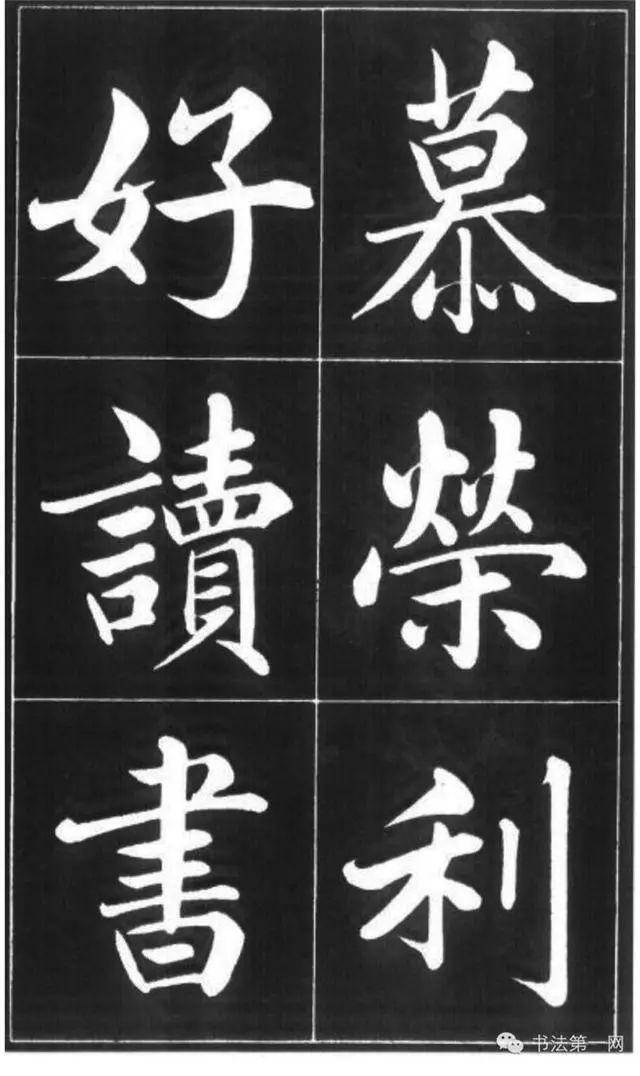 慕榮利
好讀書
书法第一网